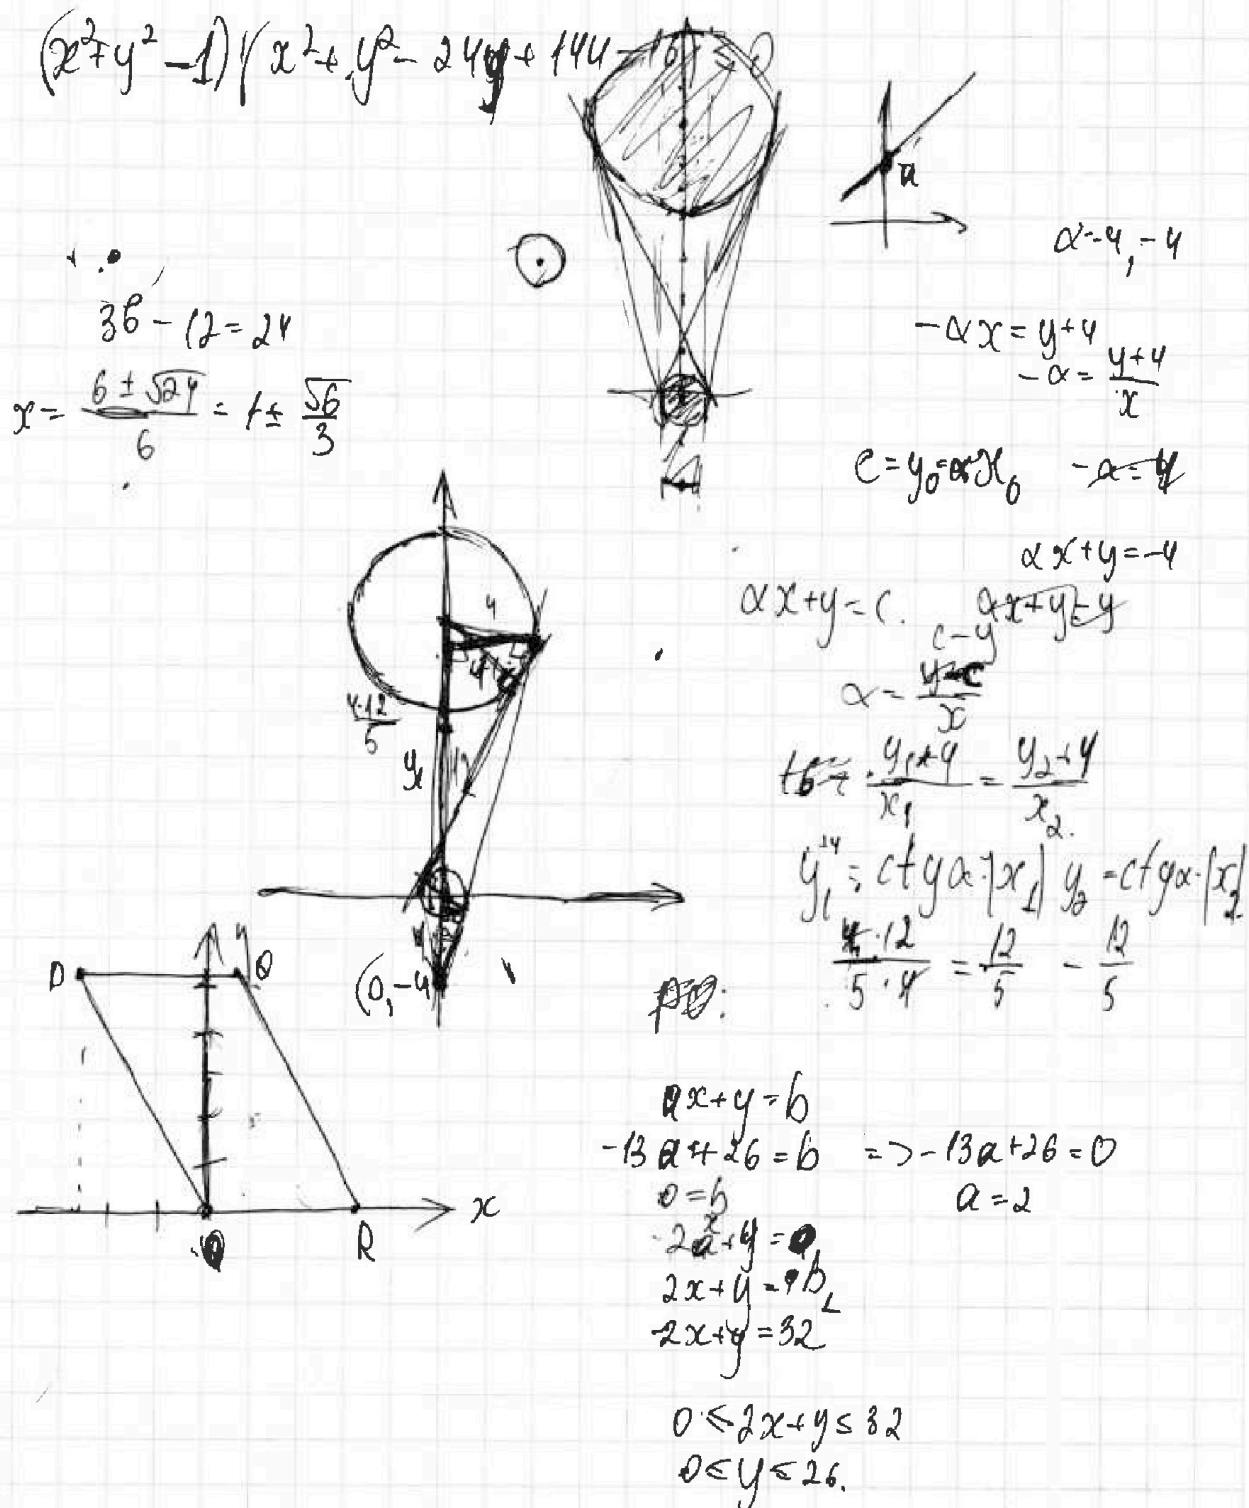 (x²+y²-1)(x²+y²-24y+144-16) ≤ 0
a
α=-4, -4
36-12=24
x = (6 ± √24)/6 = 1 ± √6/3
-αx = y+4
-α = (y+4)/x
c = y₀ αx₀ -α=4
αx+y=-4
αx+y=c. αx+y=y
c-y
α = (y-c)/x
4
4
4·12/5
y₁
12
(y₁+4)/x₁ = (y₂+4)/x₂
y₁⁺⁴ = ctgα·|x₁| y₂ = ctgα·|x₂|
(4·12)/(5·4) = 12/5 - 12/5
(0,-4)
y
P Q
PO:
O R x
ax+y=b
-13a+26=b => -13a+26=0
0=b a=2
2x+y=0
2x+y=b₂
2x+y=32
0≤2x+y≤32
0≤y≤26.